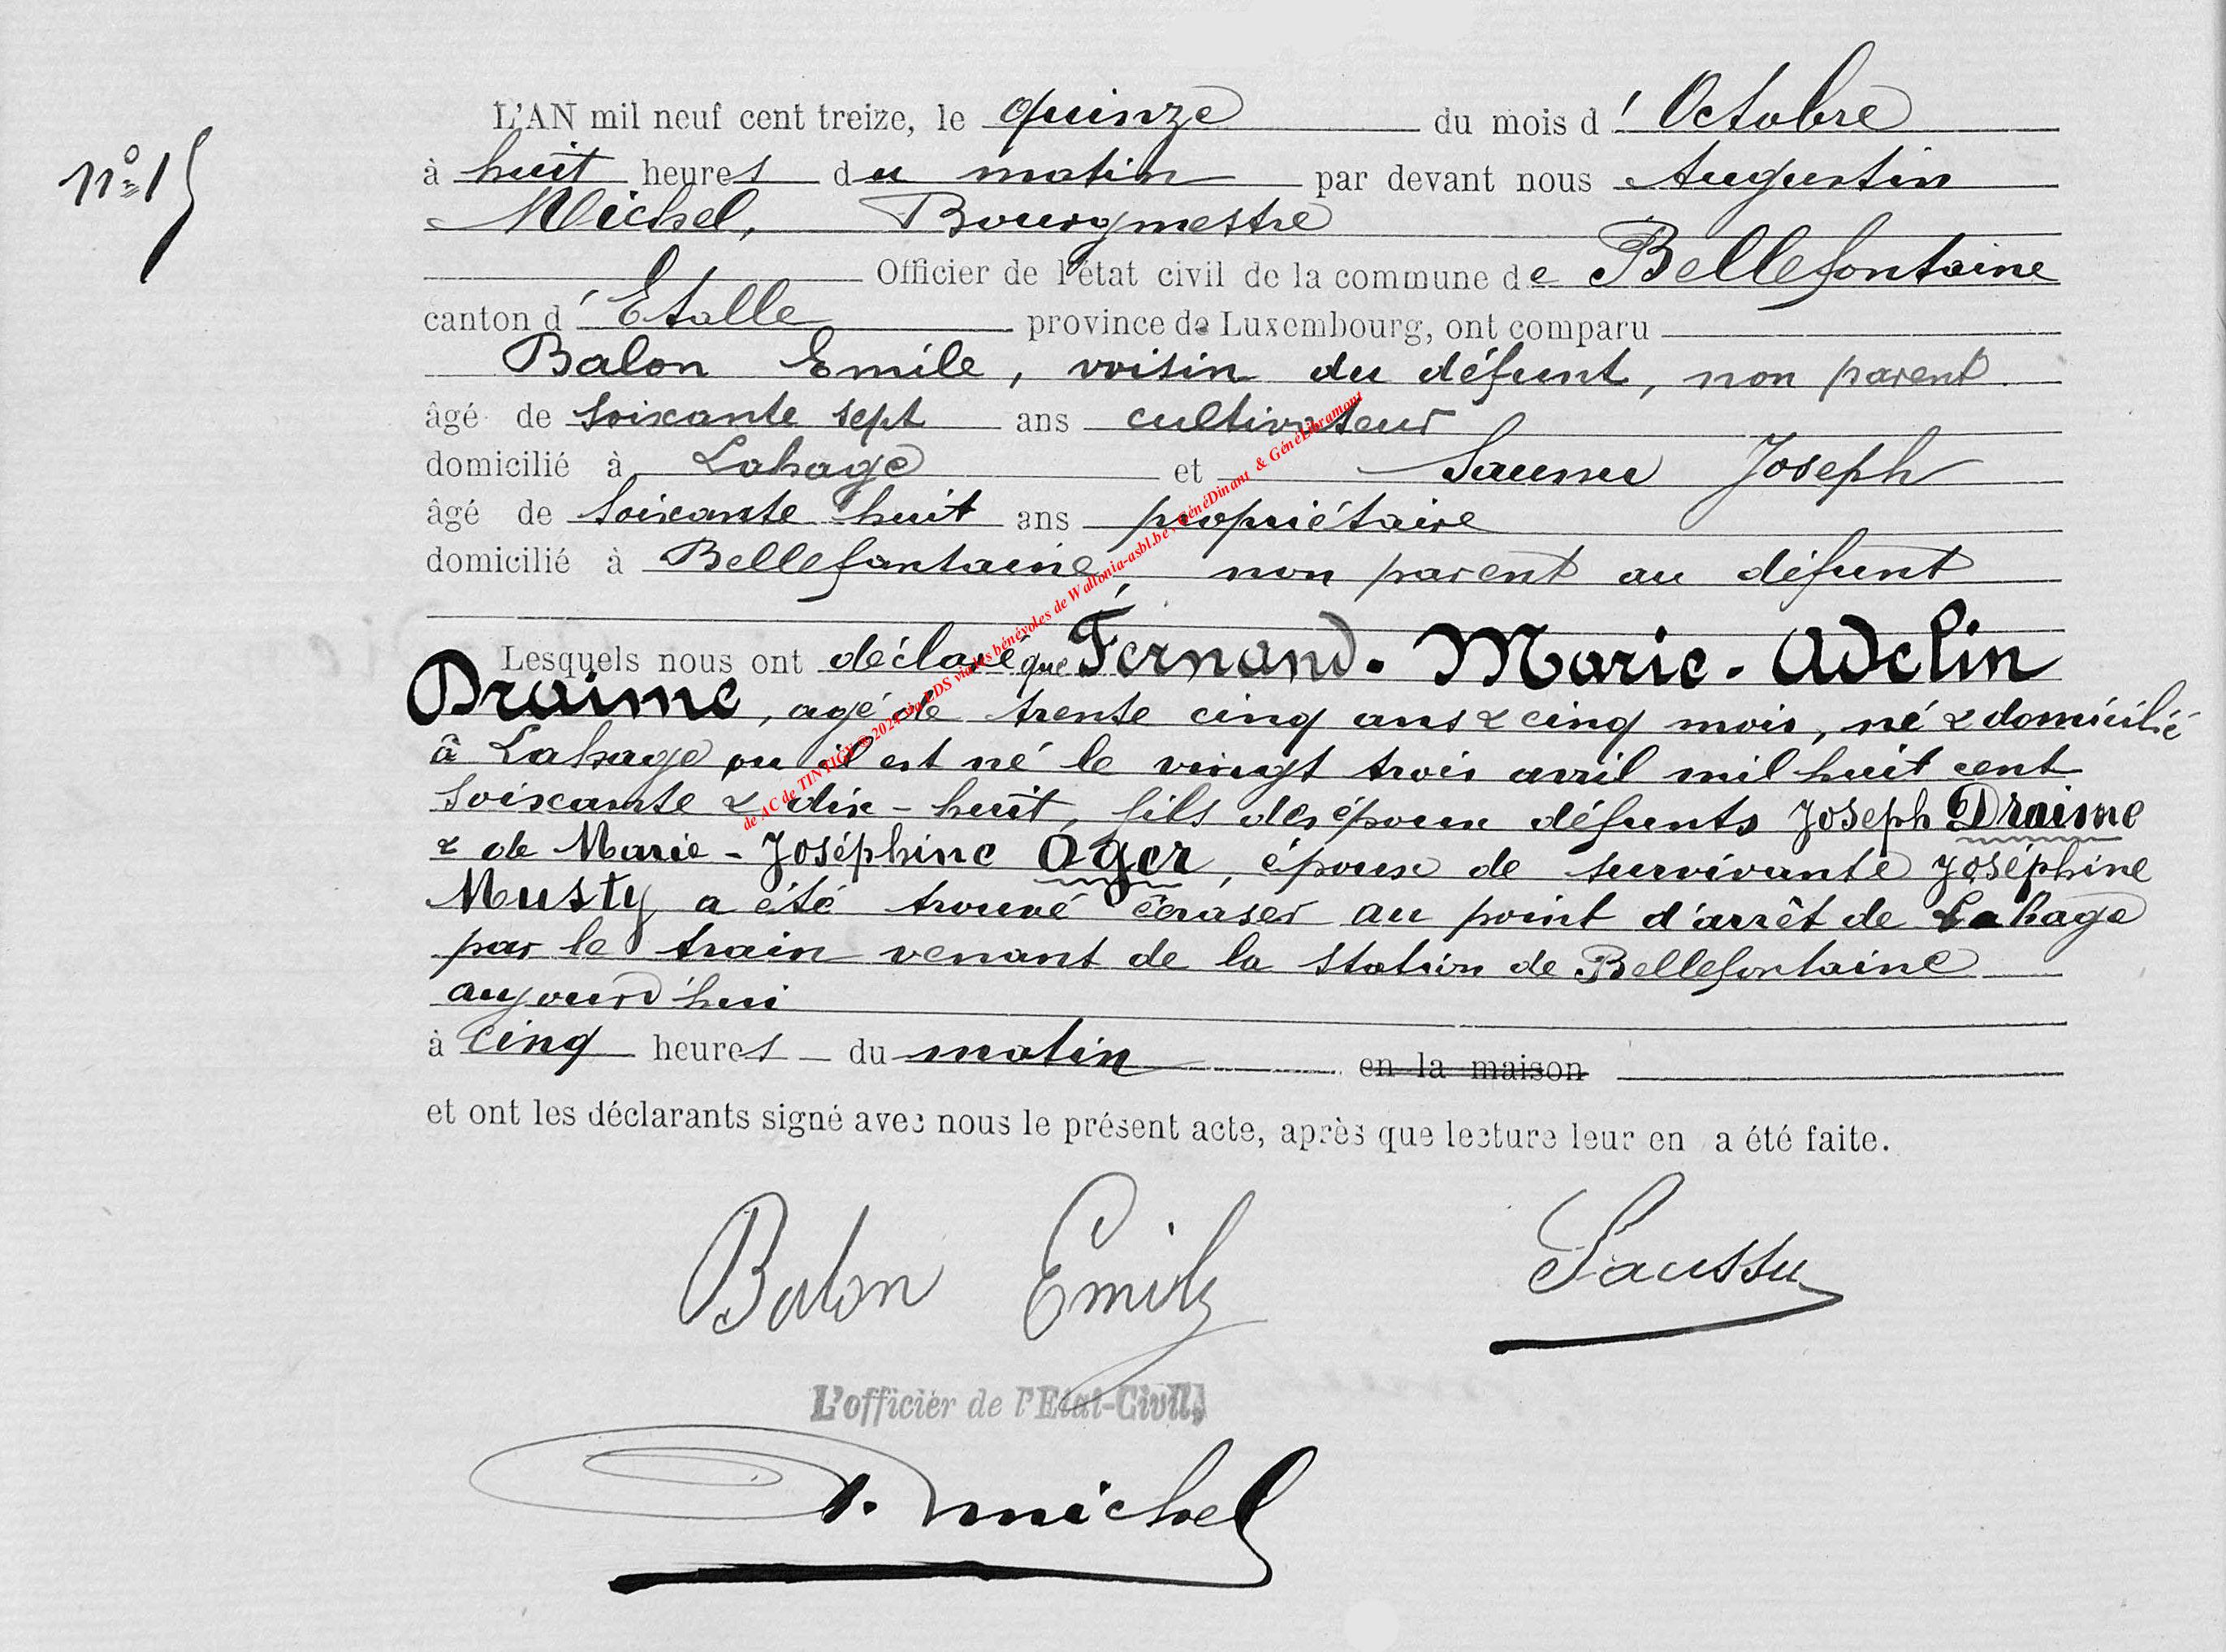 L'AN mil neuf cent treize, le quinze du mois d'Octobre
n° 15
à huit heures du matin par devant nous Augustin
Michel, Bourgmestre
Officier de l'état civil de la commune de Bellefontaine
canton d'Etalle province de Luxembourg, ont comparu
Balon Emile, voisin du défunt, non parent
âgé de soixante sept ans cultivateur
domicilié à Lahage et Saussu Joseph
âgé de soixante huit ans propriétaire
domicilié à Bellefontaine, non parent au défunt
Lesquels nous ont déclaré que Fernand-Marie-Adelin
Draime, agé de trente cinq ans & cinq mois, né & domicilié
à Lahage ou il est né le vingt trois avril mil huit cent
soixante & dix-huit, fils des époux défunts Joseph Draime
& de Marie-Joséphine Oger, époux de survivante Joséphine
Musty a été trouvé écraser au point d'arrêt de Lahage
par le train venant de la station de Bellefontaine
aujourd'hui
à cinq heures du matin en la maison
et ont les déclarants signé avec nous le présent acte, après que lecture leur en a été faite.
Balon Emile Saussu
L'officier de l'Etat-Civil,
A. Michel
de AC de TINTIGNY © 2024 via LDS via les bénévoles de Wallonia-asbl.be, GénéDinant & GénéLibramont